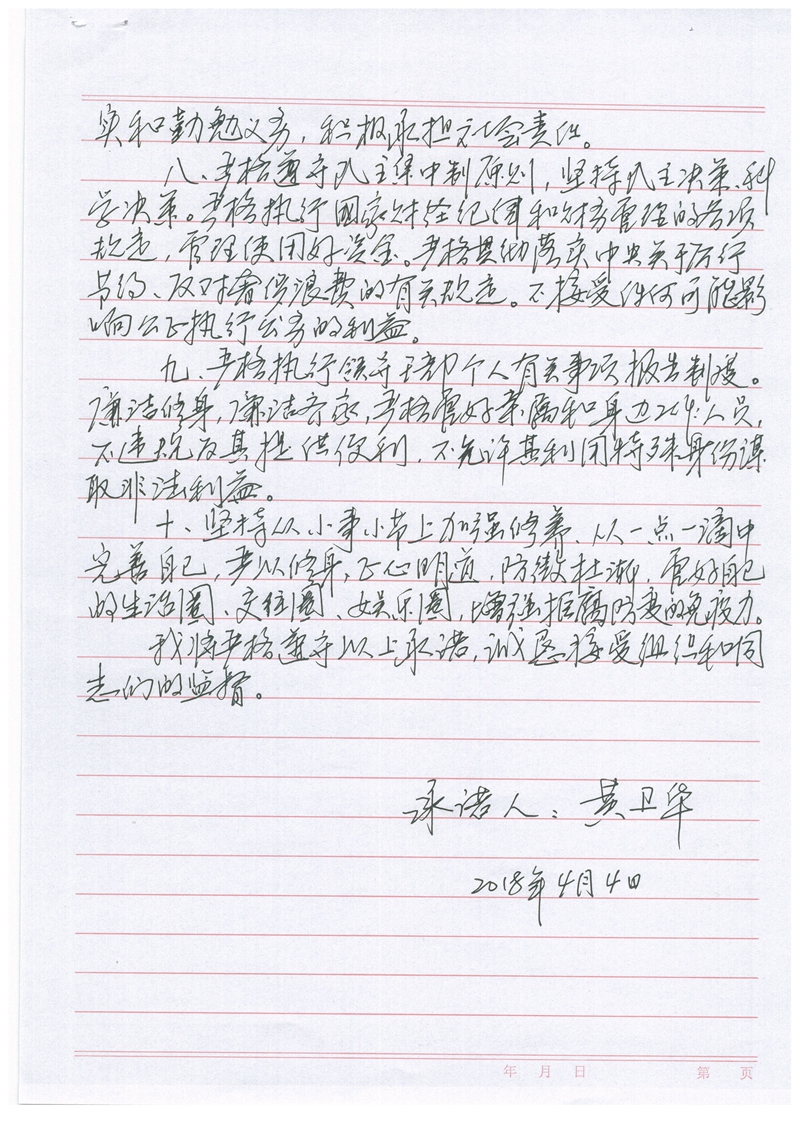 实和勤勉义务，积极承担社会责任。
八、严格遵守民主集中制原则，坚持民主决策、科
学决策。严格执行国家财经纪律和财务管理的各项
规定，管理使用好资金。严格贯彻落实中央关于厉行
节约、反对奢侈浪费的有关规定。不接受任何可能影
响公正执行公务的利益。
九、严格执行领导干部个人有关事项报告制度。
廉洁修身，廉洁齐家，严格管好亲属和身边工作人员，
不违规为其提供便利，不允许其利用特殊身份谋
取非法利益。
十、坚持从小事小节上加强修养、从一点一滴中
完善自己，严以修身，正心明道，防微杜渐，管好自己
的生活圈、交往圈、娱乐圈，增强拒腐防变的免疫力。
我将严格遵守以上承诺，诚恳接受组织和同
志们的监督。
承诺人：黄卫华
2018年4月4日
年 月 日 第 页